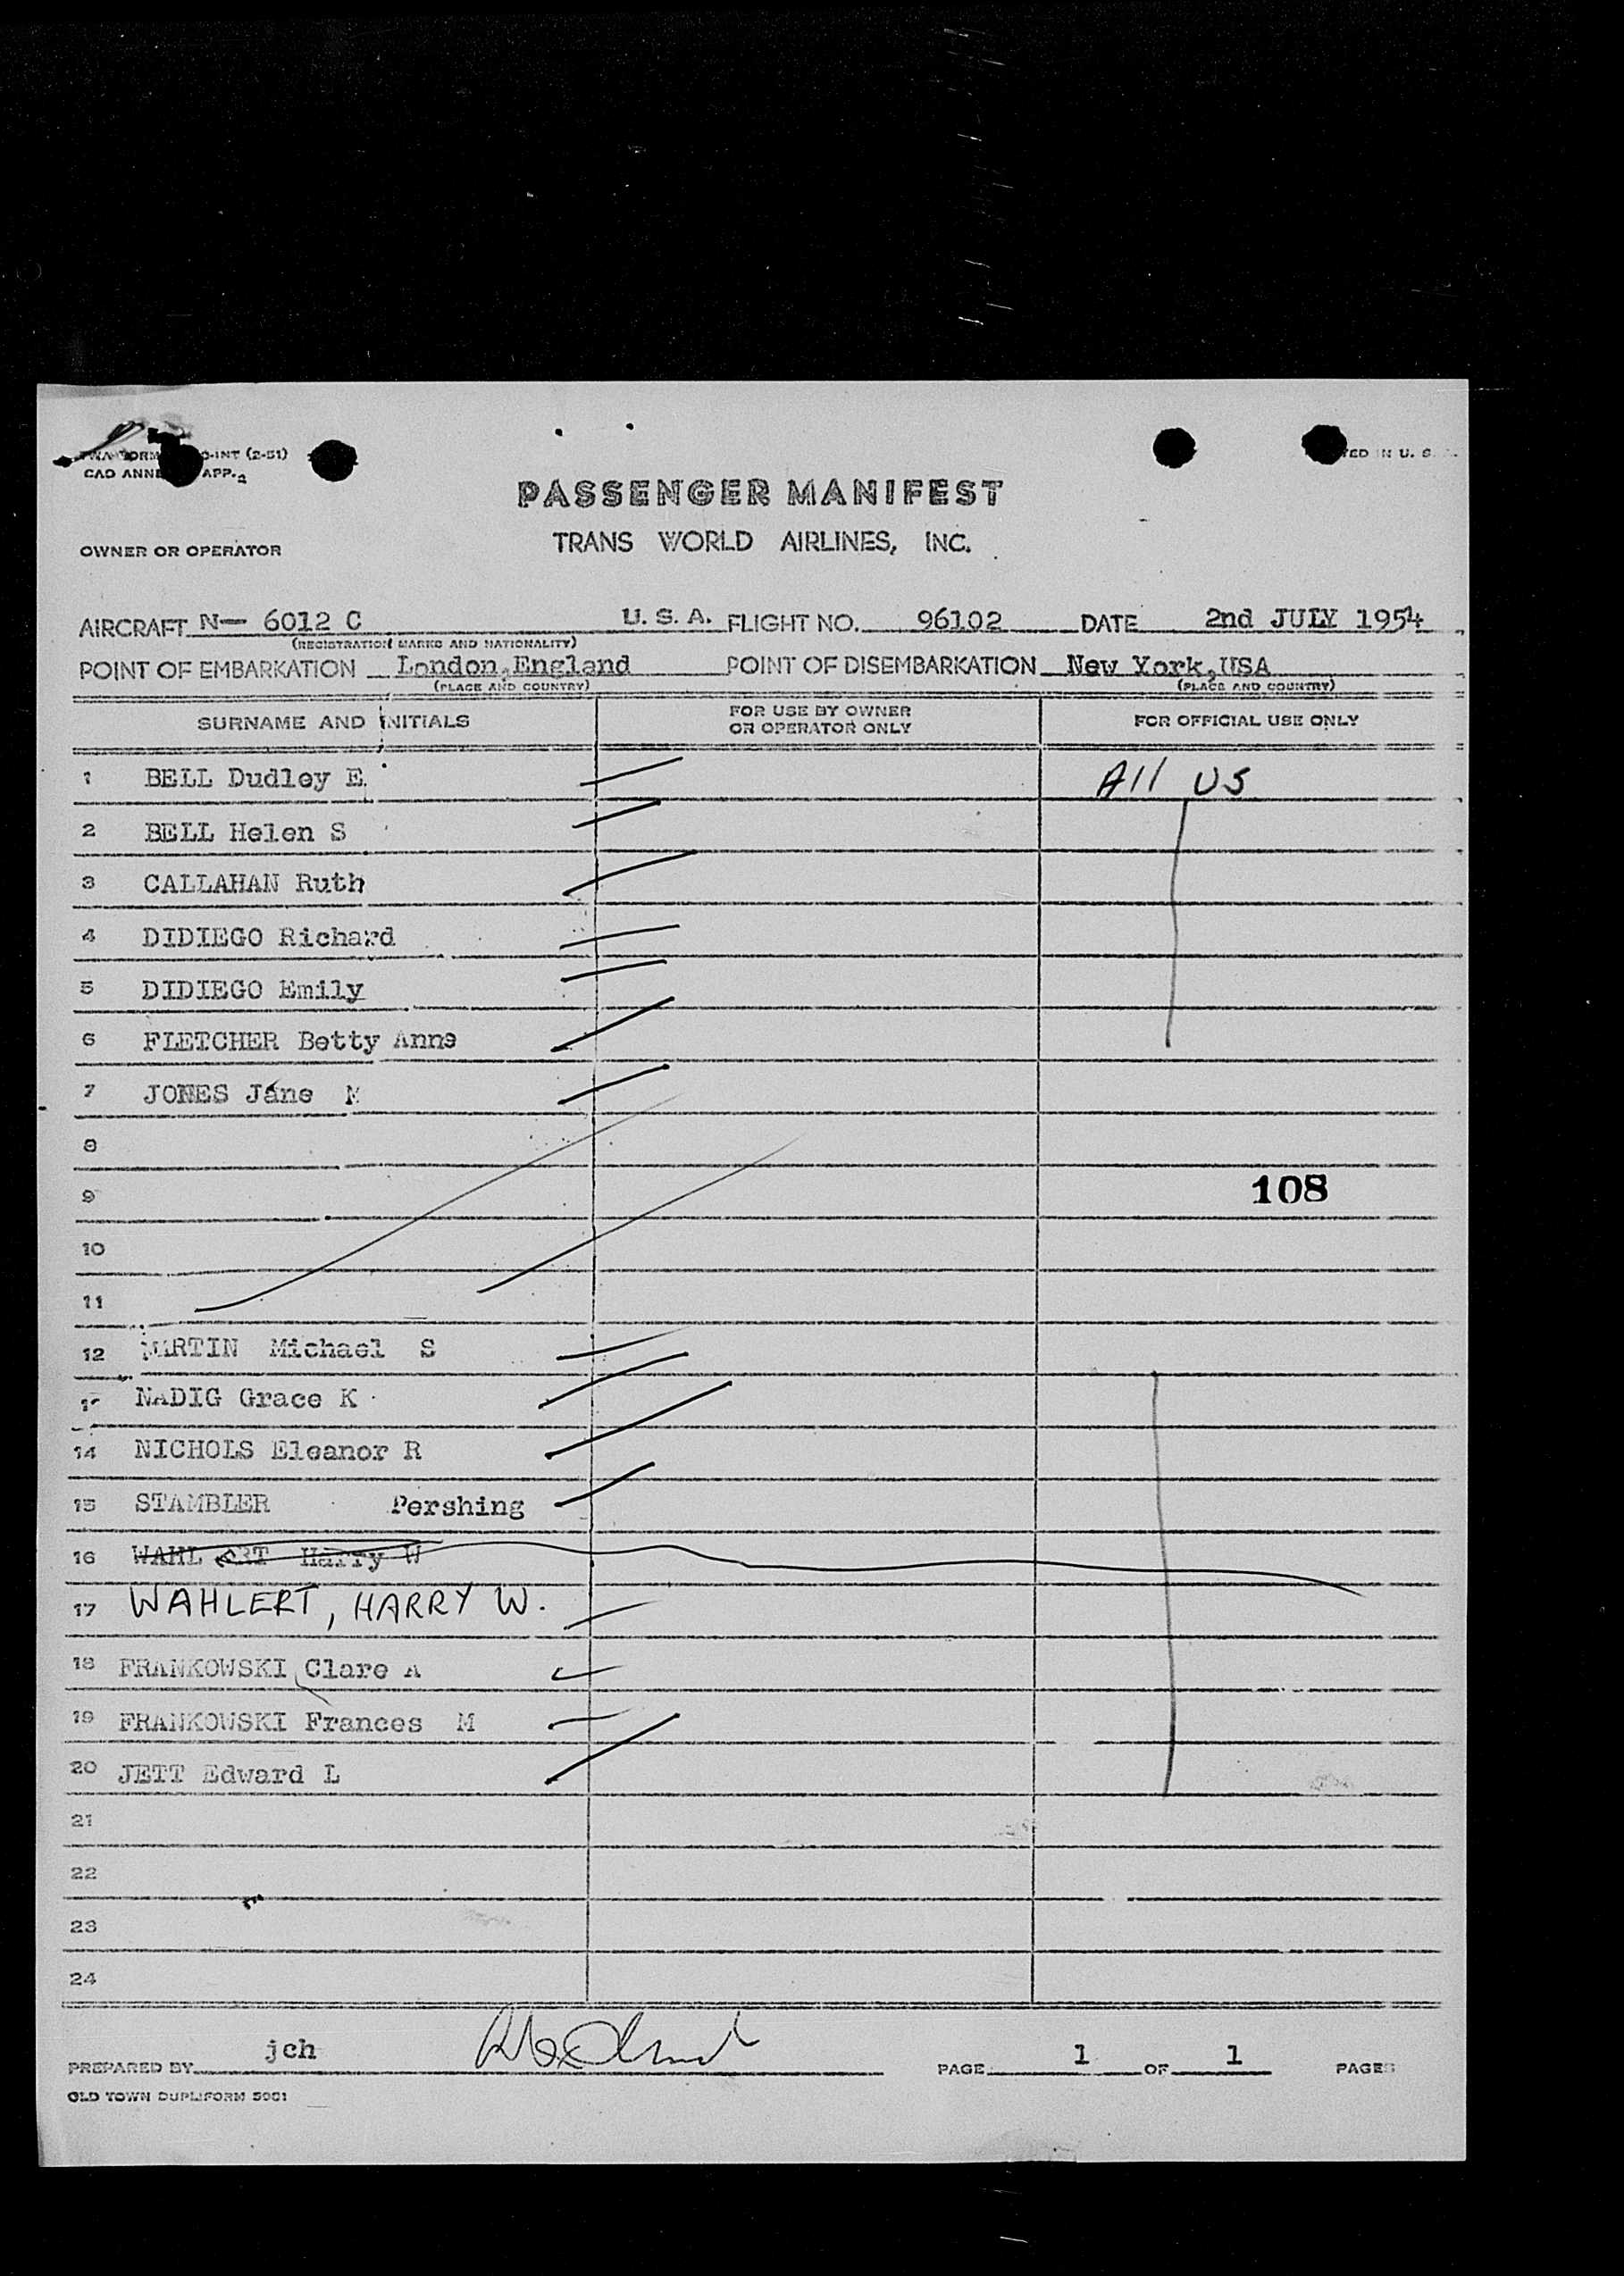 O-INT (2-51)
CAO ANNE APP.2
TED IN U. S.
PASSENGER MANIFEST
OWNER OR OPERATOR
TRANS WORLD AIRLINES, INC.
AIRCRAFT N— 6012 C U. S. A. FLIGHT NO. 96102 DATE 2nd JULY 1954
(REGISTRATION MARKS AND NATIONALITY)
POINT OF EMBARKATION London,England POINT OF DISEMBARKATION New York,USA
(PLACE AND COUNTRY) (PLACE AND COUNTRY)
SURNAME AND INITIALS FOR USE BY OWNER OR OPERATOR ONLY FOR OFFICIAL USE ONLY
1 BELL Dudley E All US
2 BELL Helen S
3 CALLAHAN Ruth
4 DIDIEGO Richard
5 DIDIEGO Emily
6 FLETCHER Betty Anne
7 JONES Jane M
8
9 108
10
11
12 MARTIN Michael S
NADIG Grace K
14 NICHOLS Eleanor R
15 STAMBLER Pershing
16 WAHL ERT Harry W
17 WAHLERT, HARRY W.
18 FRANKOWSKI Clare A
19 FRANKOWSKI Frances M
20 JETT Edward L
21
22
23
24
PREPARED BY jch PAGE 1 OF 1 PAGES
OLD TOWN DUPLIFORM 5001